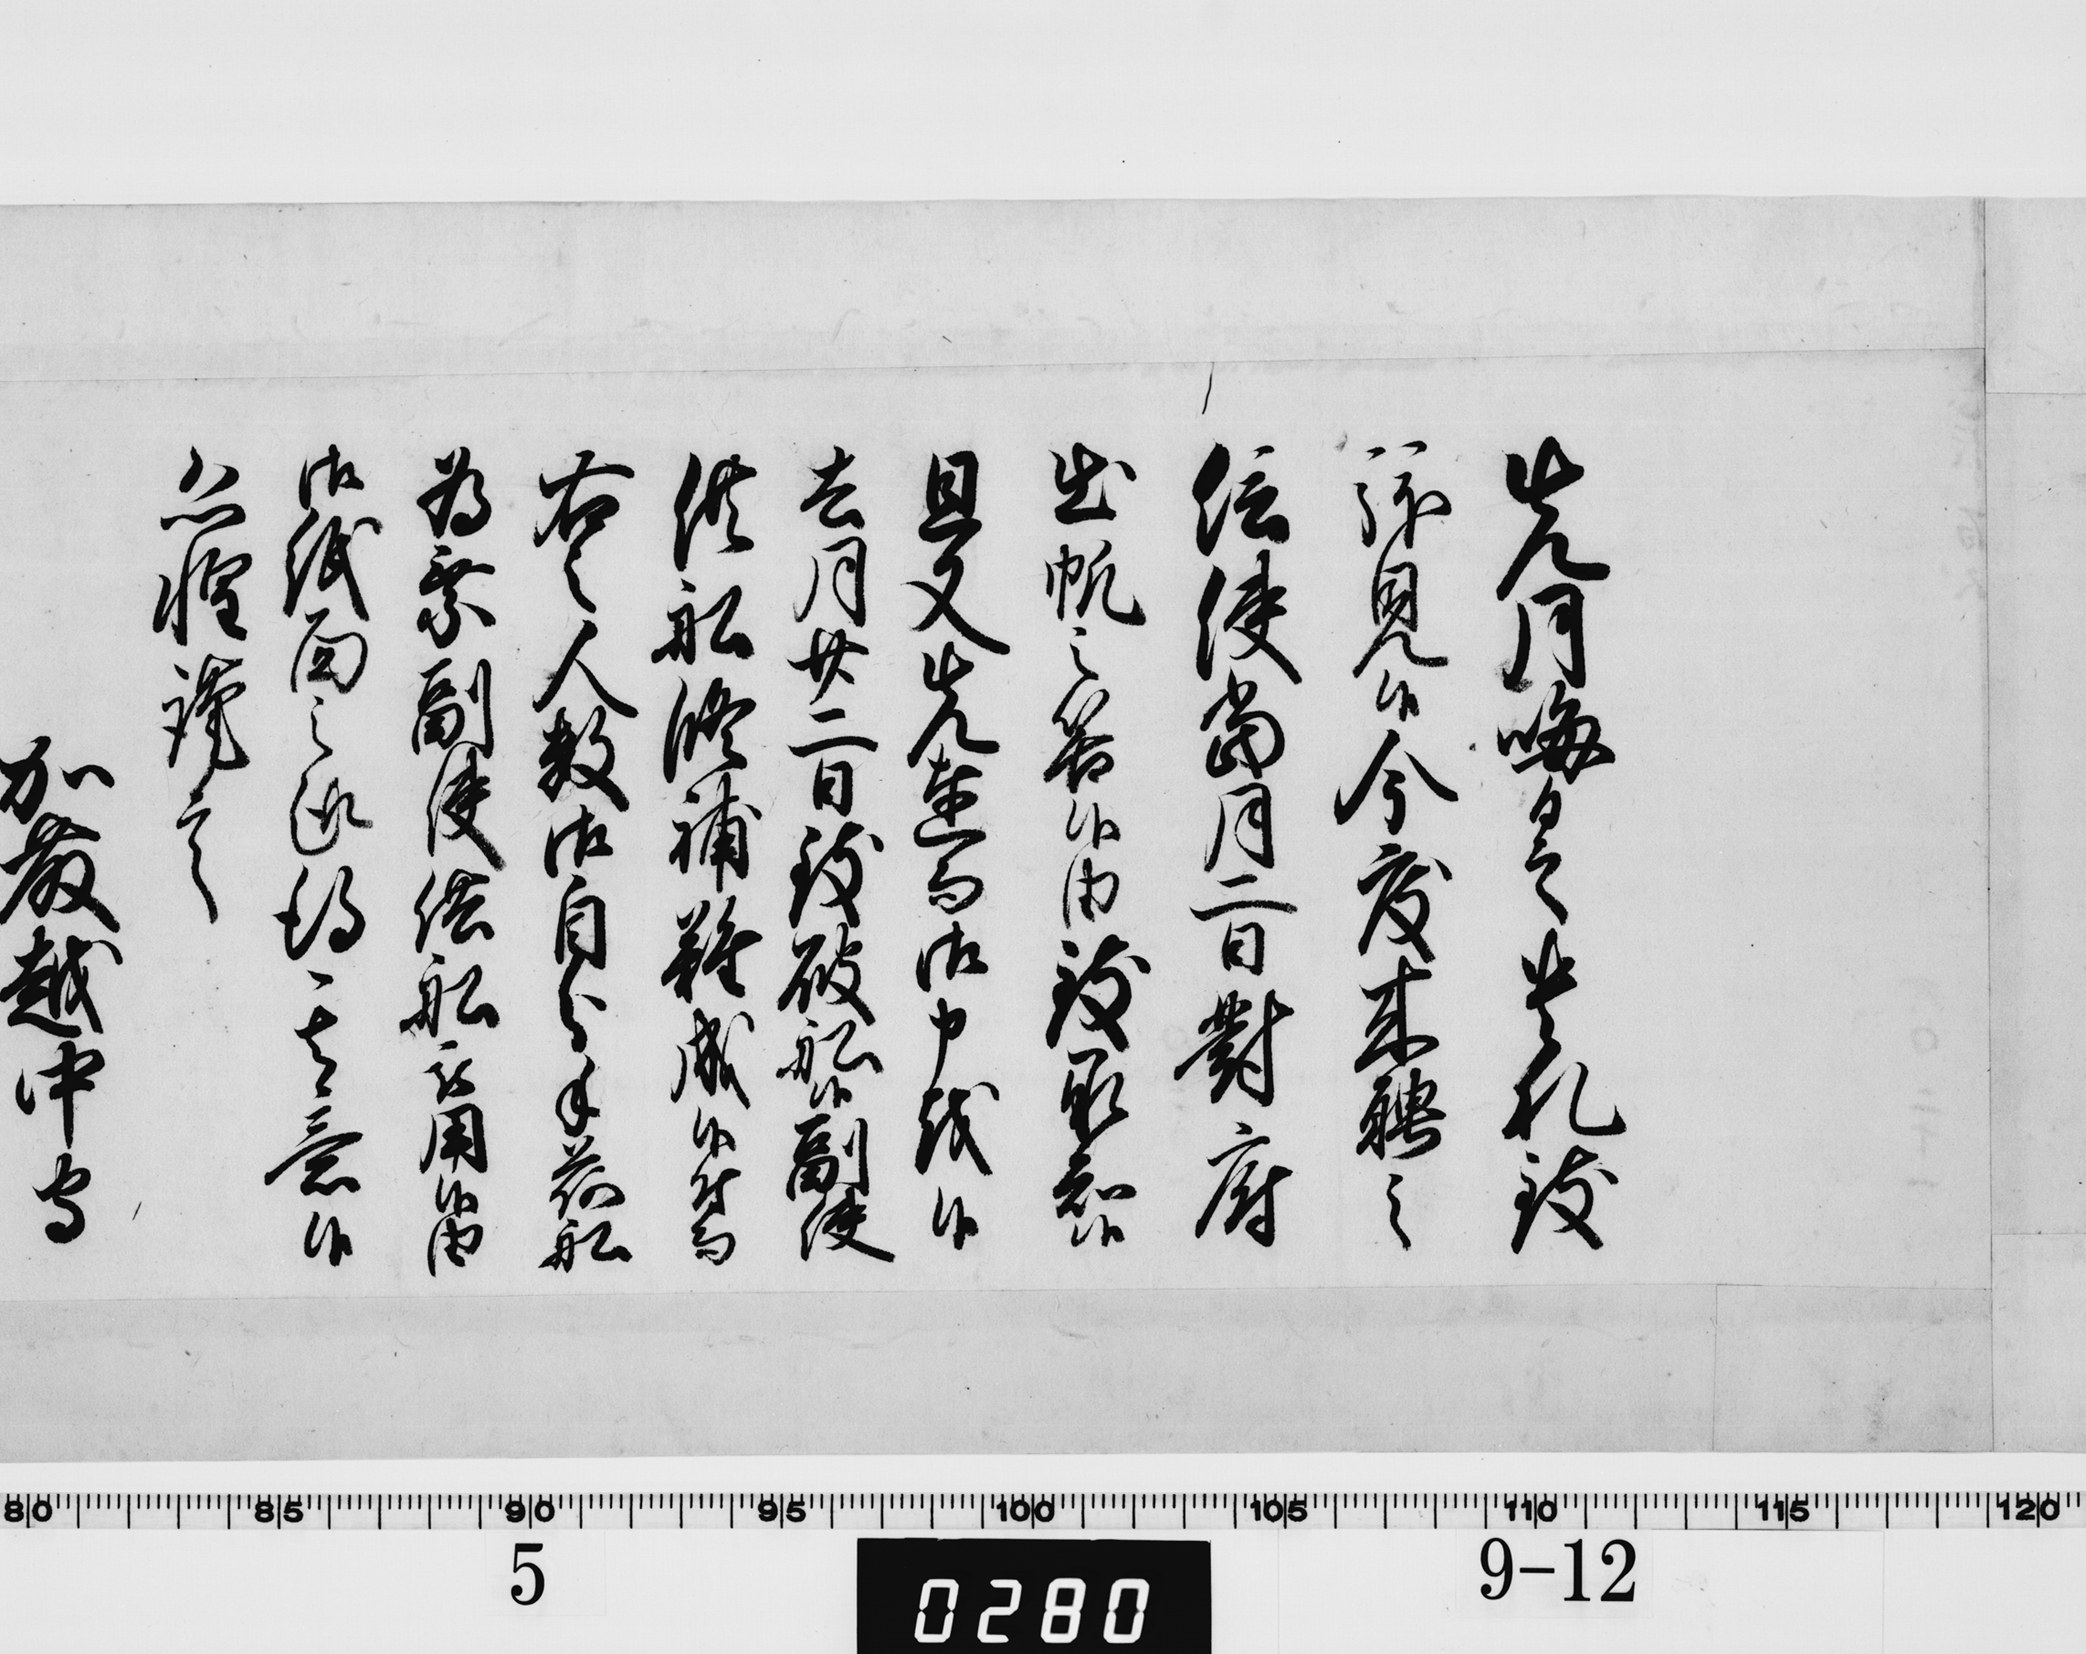 先月晦日之貴札致
拝見候今度来聘之
信使當月二日對府
出帆之筈候由致承知候
且又先達而御申越候
去月廿二日致破船候副使
供船修補難成候付而
右之人数御自分手荷船
為乗副使供船ニ被用候由
御紙面之趣得其意候
恐惶謹言
加藤越中守
80 85 90 95 100 105 110 115 120
5
0280
9-12